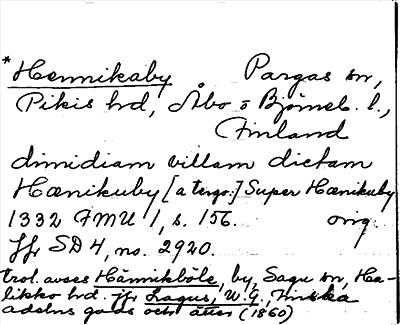 *Hennikaby Pargas sn,
Pikis hd, Åbo o Björneb. l.,
Finland
dimidiam villam dictam
Hænikuby [a tergo:] Super Hænikuby
1332 FMU 1, s. 156. orig.
Jfr SD 4, no. 2920.
trol. avses Hännikböle, by, Sagu sn, Ha-
likko hd. jfr Lagus, W. G., Finska
adelns gods och ätter (1860)